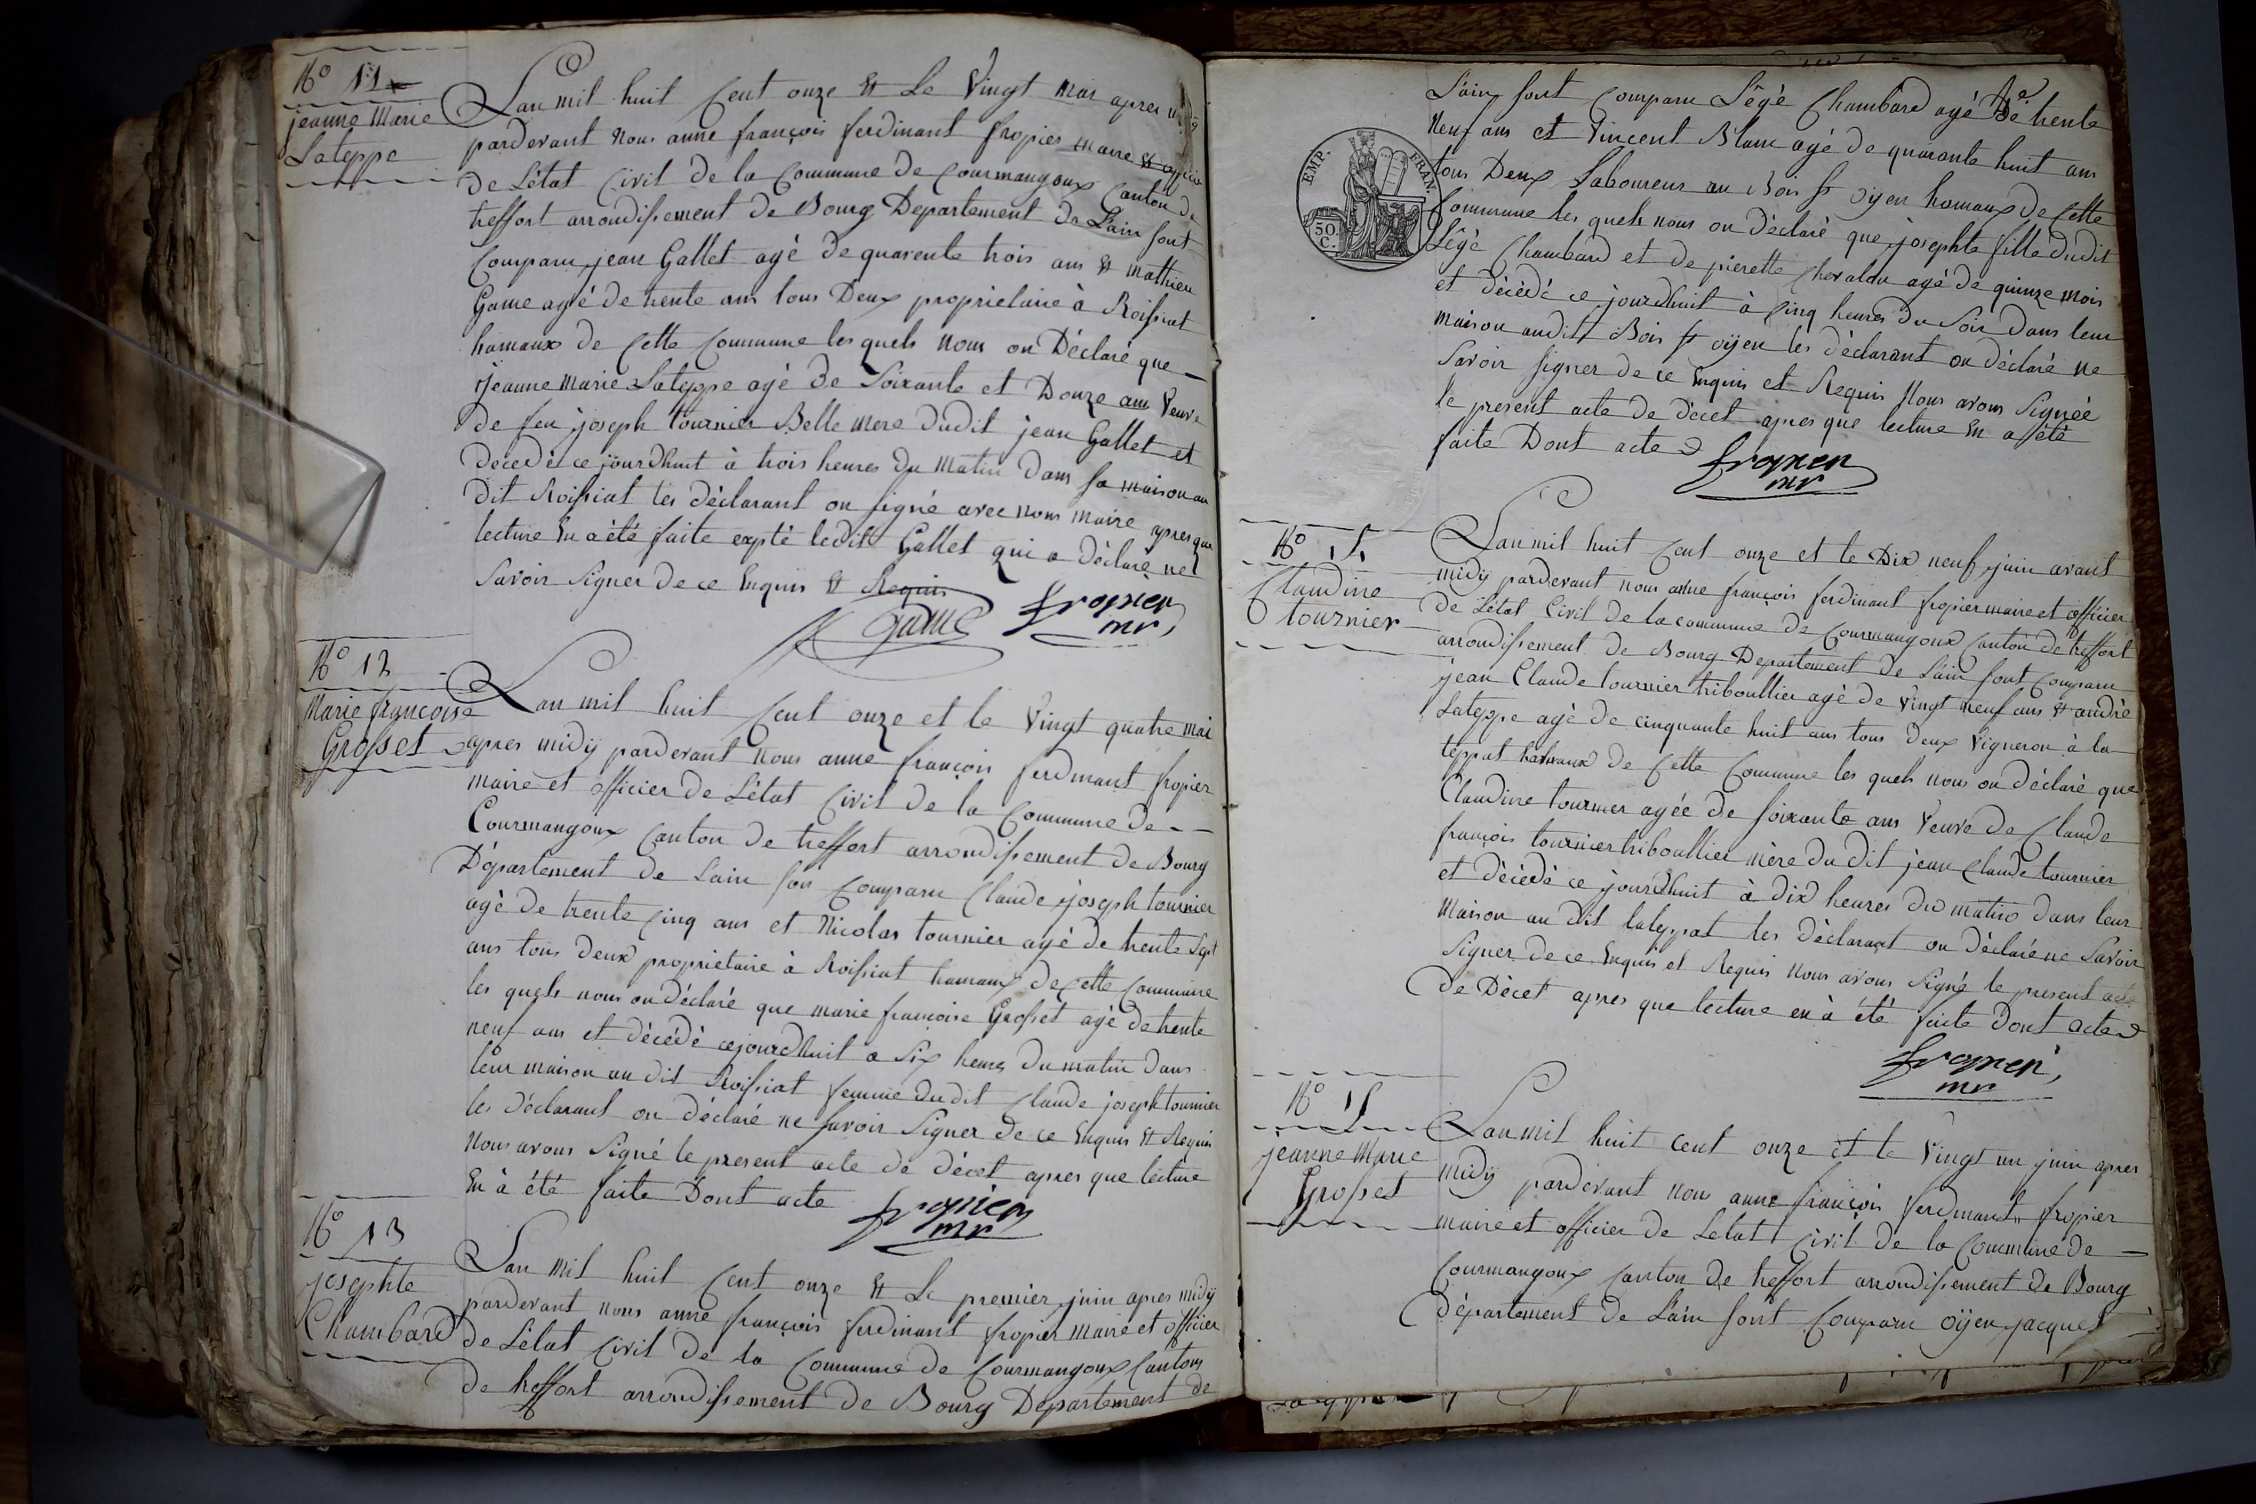 No 11
jeanne Marie
Lateppe
Lan mil huit Cent onze et Le Vingt Mai apres
pardevant nous anne françois ferdinant fropier maire et officier
de Létat Civil de la Commune de Courmangoux Canton de
treffort arrondissement de Bourg Departement de Lain sont
Comparu jean Gallet agé de quarente trois ans et mathieu
Game agé de trente ans tous Deux proprietaire à Roissiat
hamaux de Cette Commune les quels nous on Déclaré que —
jeanne Marie Lateppe agé de Soixante et Douze ans Veuve
de feu joseph tournier Belle mere dudit jean Gallet et
décedé ce jourdhuit à trois heures du Matin dans sa maison au
dit Roissiat les déclarant on signé avec nous maire apres que
lecture En a été faite expté ledit Gallet qui a déclaré ne
Savoir Signer de ce Enquis et Requis
Game fropier
mr
No 12
Marie françoise
Grosset
Lan mil huit Cent onze et le Vingt quatre mai
apres midy pardevant nous anne françois ferdinant fropier
maire et officier de Létat Civil de la Commune de - —
Courmangoux Canton de treffort arrondissement de Bourg
Département de Lain son Comparu Claude joseph tournier
agé de trente Cinq ans et Nicolas tournier agé de trente Sept
ans tous deux proprietaire à Roissiat hamaux de Cette Commune
les quels nous on déclaré que marie françoise Grosset agé de trente
neuf ans et décédé cejourdhuit a Six heures du matin dans
leur maison au dit Roissiat femme dudit Claude joseph tournier
les déclarant on déclaré ne savoir Signer de ce Enquis et Requis
Nous avons Signé le present acte de décet apres que lecture
En à été faite Dont acte
fropier
mr
No 13
josephte
Chambard
Lan Mil huit Cent onze et Le premier juin apres midy
pardevant nous anne françois ferdinant fropier Maire et officier
de Létat Civil de la Commune de Courmangoux Canton
de treffort arrondissement de Bourg Departement de
Lain sont Comparu Légé Chambard agé de trente
Neuf ans et Vincent Blanc agé de quarante huit ans
tous Deux Laboureur au Bois St oyen hamaux de Cette
Commune les quels nous on déclaré que josephte fille dudit
Légé Chambard et de pierette Chevalon agé de quinze mois
et décédé ce jourdhuit à Cinq heures du Soir dans leur
maison audit Bois St oyen les déclarant on déclaré ne
Savoir Signer de ce Enquis et Requis Nous avons Signée
le present acte de décet apres que lecture En a été
faite Dont acte
fropier
mr
EMP. FRAN.
50
C.
Claudine
tournier
Lan mil huit Cent onze et le Dix neuf juin avant
midy pardevant nous anne françois ferdinant fropier maire et officier
de Létat Civil de la commune de Courmangoux Canton de treffort
arrondissement de Bourg Departement de Lain sont Comparu
jean Claude tournier triboullier agé de Vingt neuf ans et andré
Lateppe agé de cinquante huit ans tous deux Vigneron à la
teppat hamaux de Cette Commune les quels nous on déclaré que
Claudine tournier agée de soixante ans Veuve de Claude
françois tournier triboullier mère du dit jean Claude tournier
et décédé ce jourdhuit à dix heures du matin dans leur
Maison au dit lateppat les déclarant on déclaré ne Savoir
Signer de ce Enquis et Requis Nous avons Signé le present acte
de Décet apres que lecture en à été faite Dont acte
fropier
mr
jeanne Marie
Grosset
Lan mil huit Cent onze et le Vingt un juin apres
midy pardevant nous anne françois ferdinant fropier
maire et officier de Létat Civil de la Commune de —
Courmangoux Canton de treffort arrondissement de Bourg
département de Lain sont Comparu oÿen jacquet